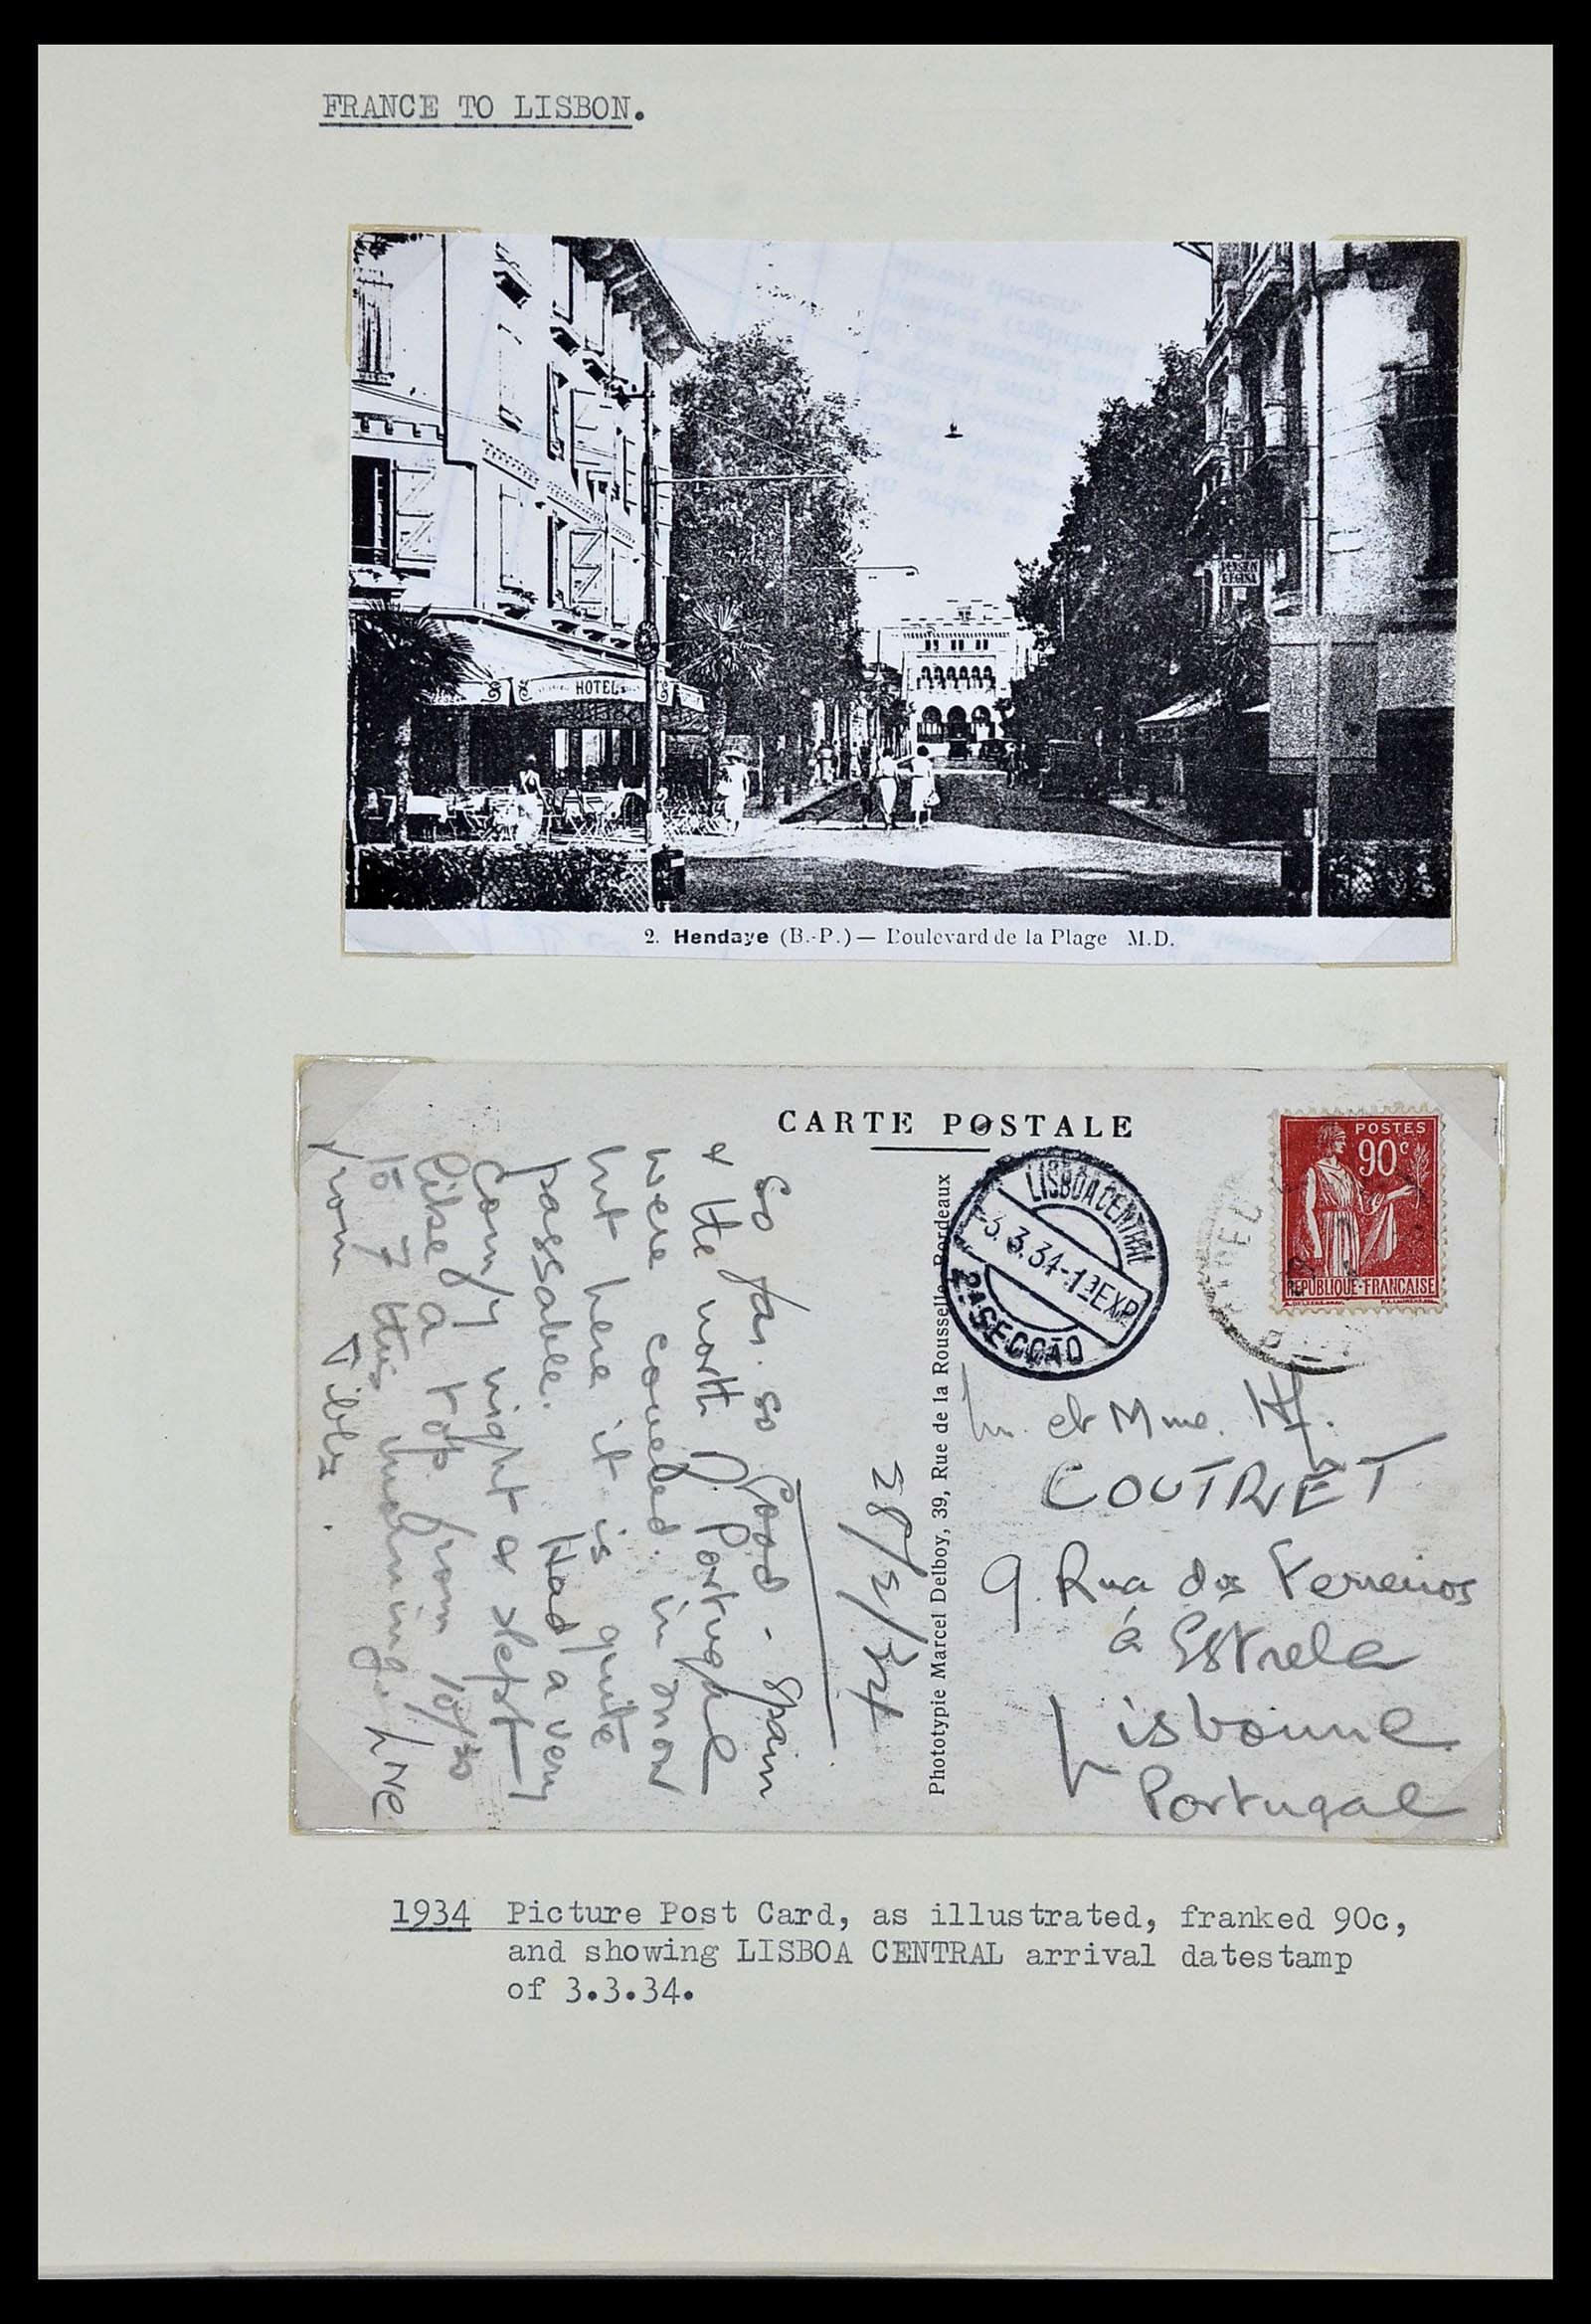 FRANCE TO LISBON.
HOTEL
PENSION
REGINA
2. Hendaye (B.-P.) — Boulevard de la Plage M.D.
CARTE POSTALE
POSTES
90c
REPUBLIQUE-FRANCAISE
LISBOA CENTRAL
-3.3.34-1ªEXP
2ª SECÇÃO
Phototypie Marcel Delboy, 39, Rue de la Rousselle, Bordeaux
28/2/34
So far. so Good - Spain
& the north of Portugal
were covered in snow
but here it is quite
passable. Had a very
comfy night & slept
like a top from 10/30
to 7 this morning. Love
from Tibbs.
et Mme. H.
COUTRET
9. Rua dos Ferreiros
à Estrela
Lisbonne
Portugal
1934 Picture Post Card, as illustrated, franked 90c,
and showing LISBOA CENTRAL arrival datestamp
of 3.3.34.